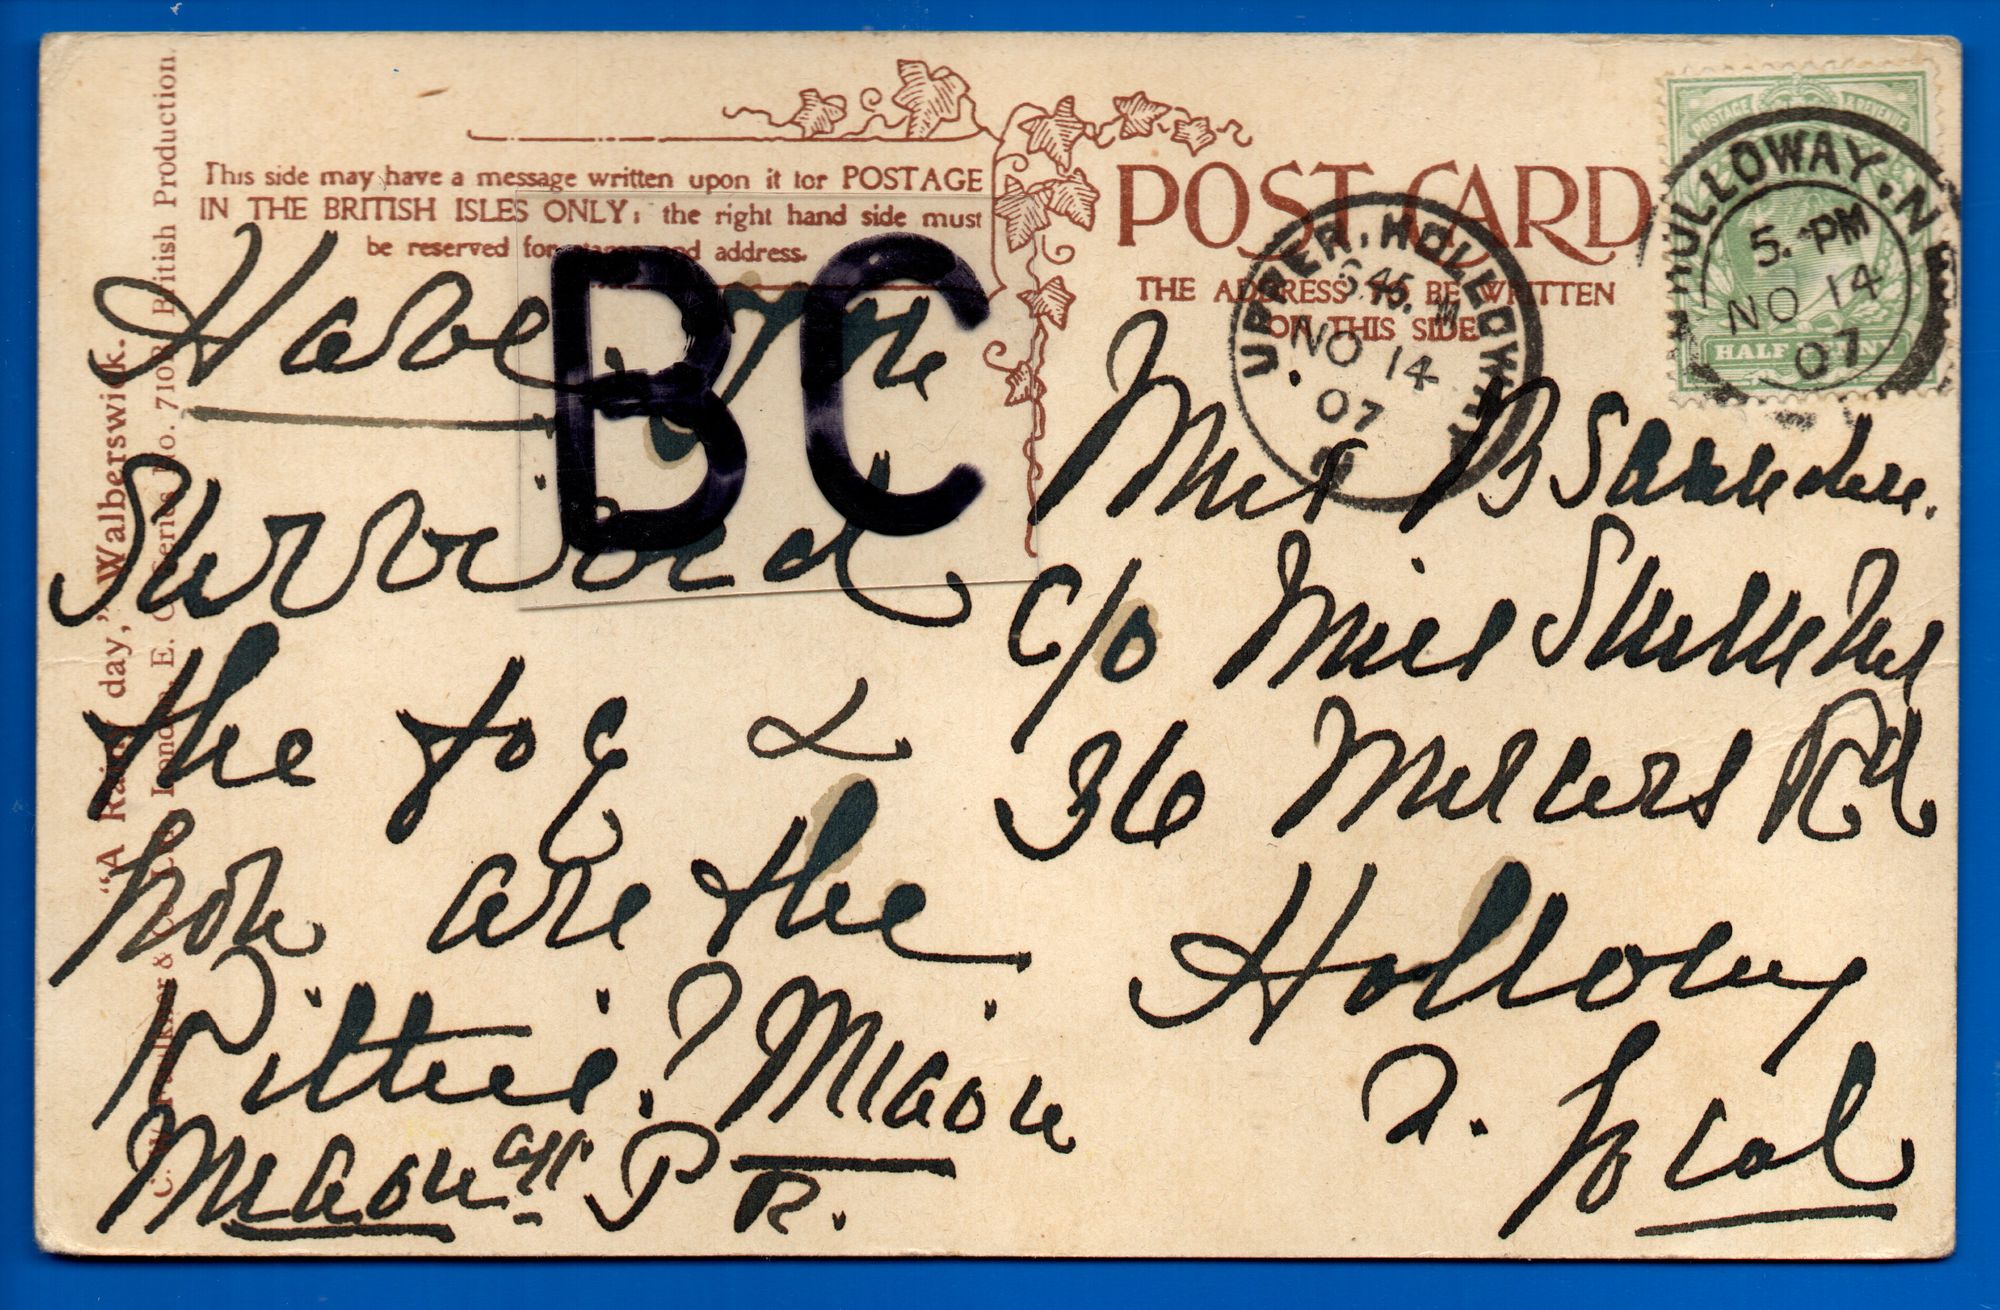 This side may have a message written upon it for POSTAGE
IN THE BRITISH ISLES ONLY; the right hand side must
be reserved for stamp and address.
POST CARD
THE ADDRESS TO BE WRITTEN
ON THIS SIDE
POSTAGE & REVENUE
HALF PENNY
HOLLOWAY. N
5. PM
NO 14
07
UPPER. HOLLOWAY
6.45. PM
NO 14
07
BC
Have you
Survived
the fog &
how are the
Kitties? Miaow
Miaow
P
R.
Miss B Saunders.
C/o Miss
36 Mercers Rd
Holloway
N. Local
"A Rainy day," Walberswick.
C. W. Faulkner & Co. Ltd. London, E. C. Series No. 710B British Production.